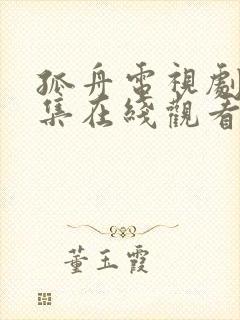 孤舟電視劇
集在綫觀看
董玉霞